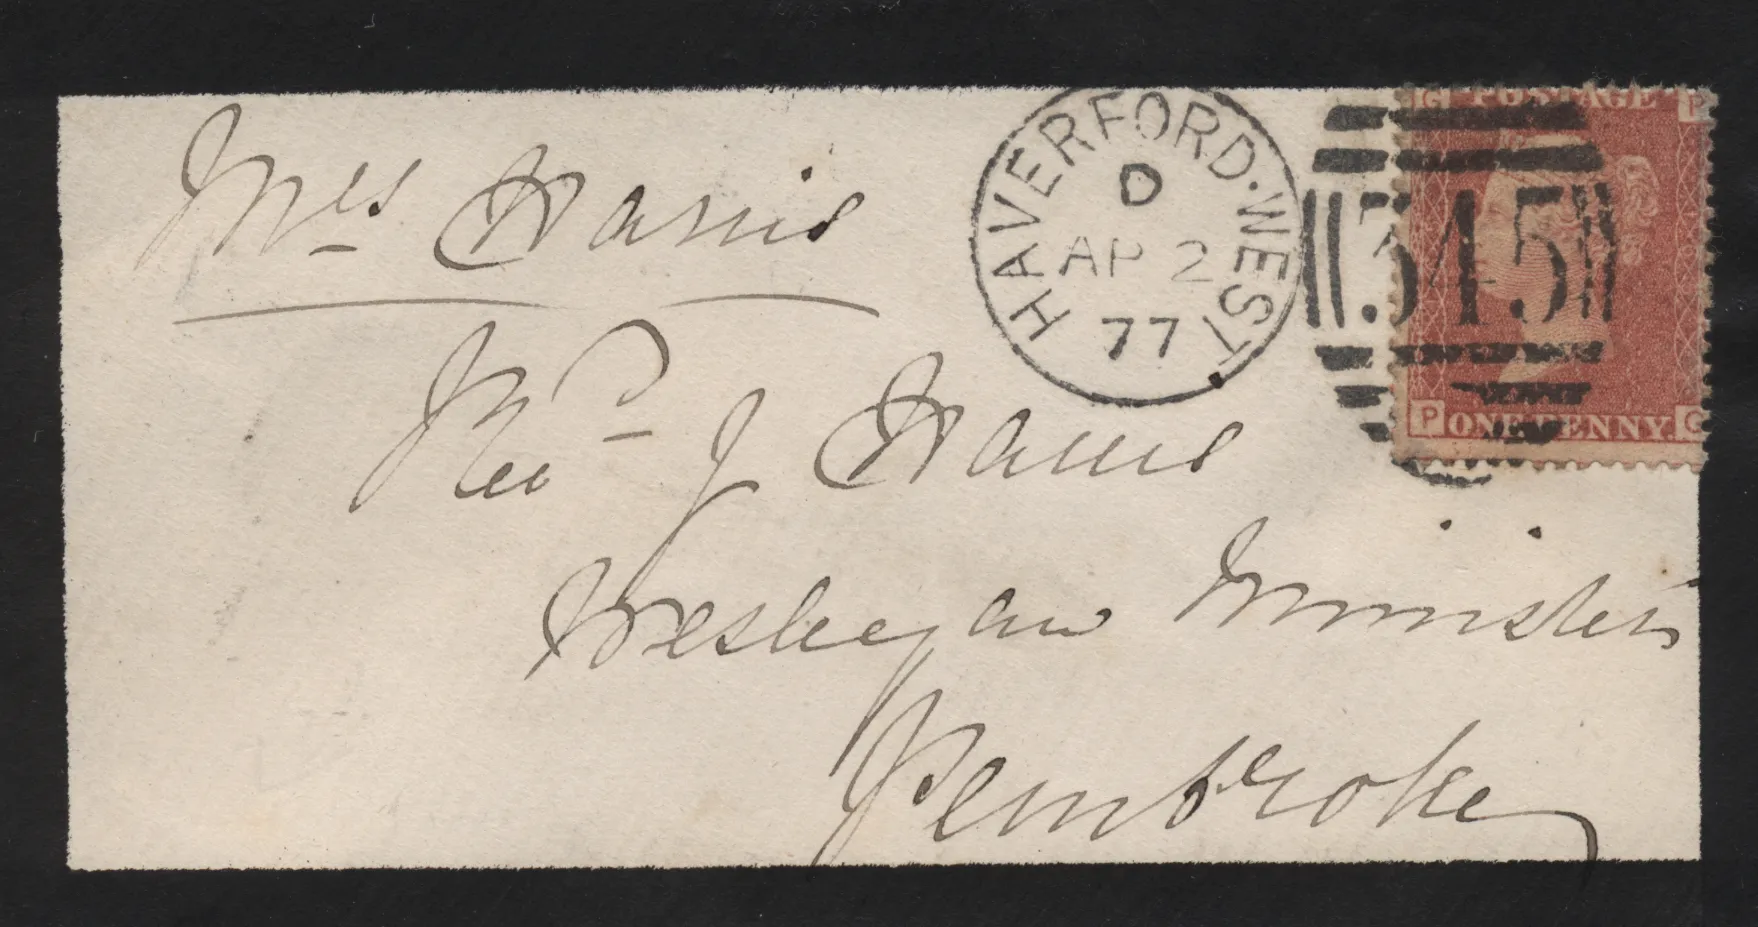 Mrs Harris
Revd J Harris
Wesleyan Minister
Pembroke
HAVERFORD·WEST
D
AP 2
77
345
G POSTAGE P
P ONE PENNY. G